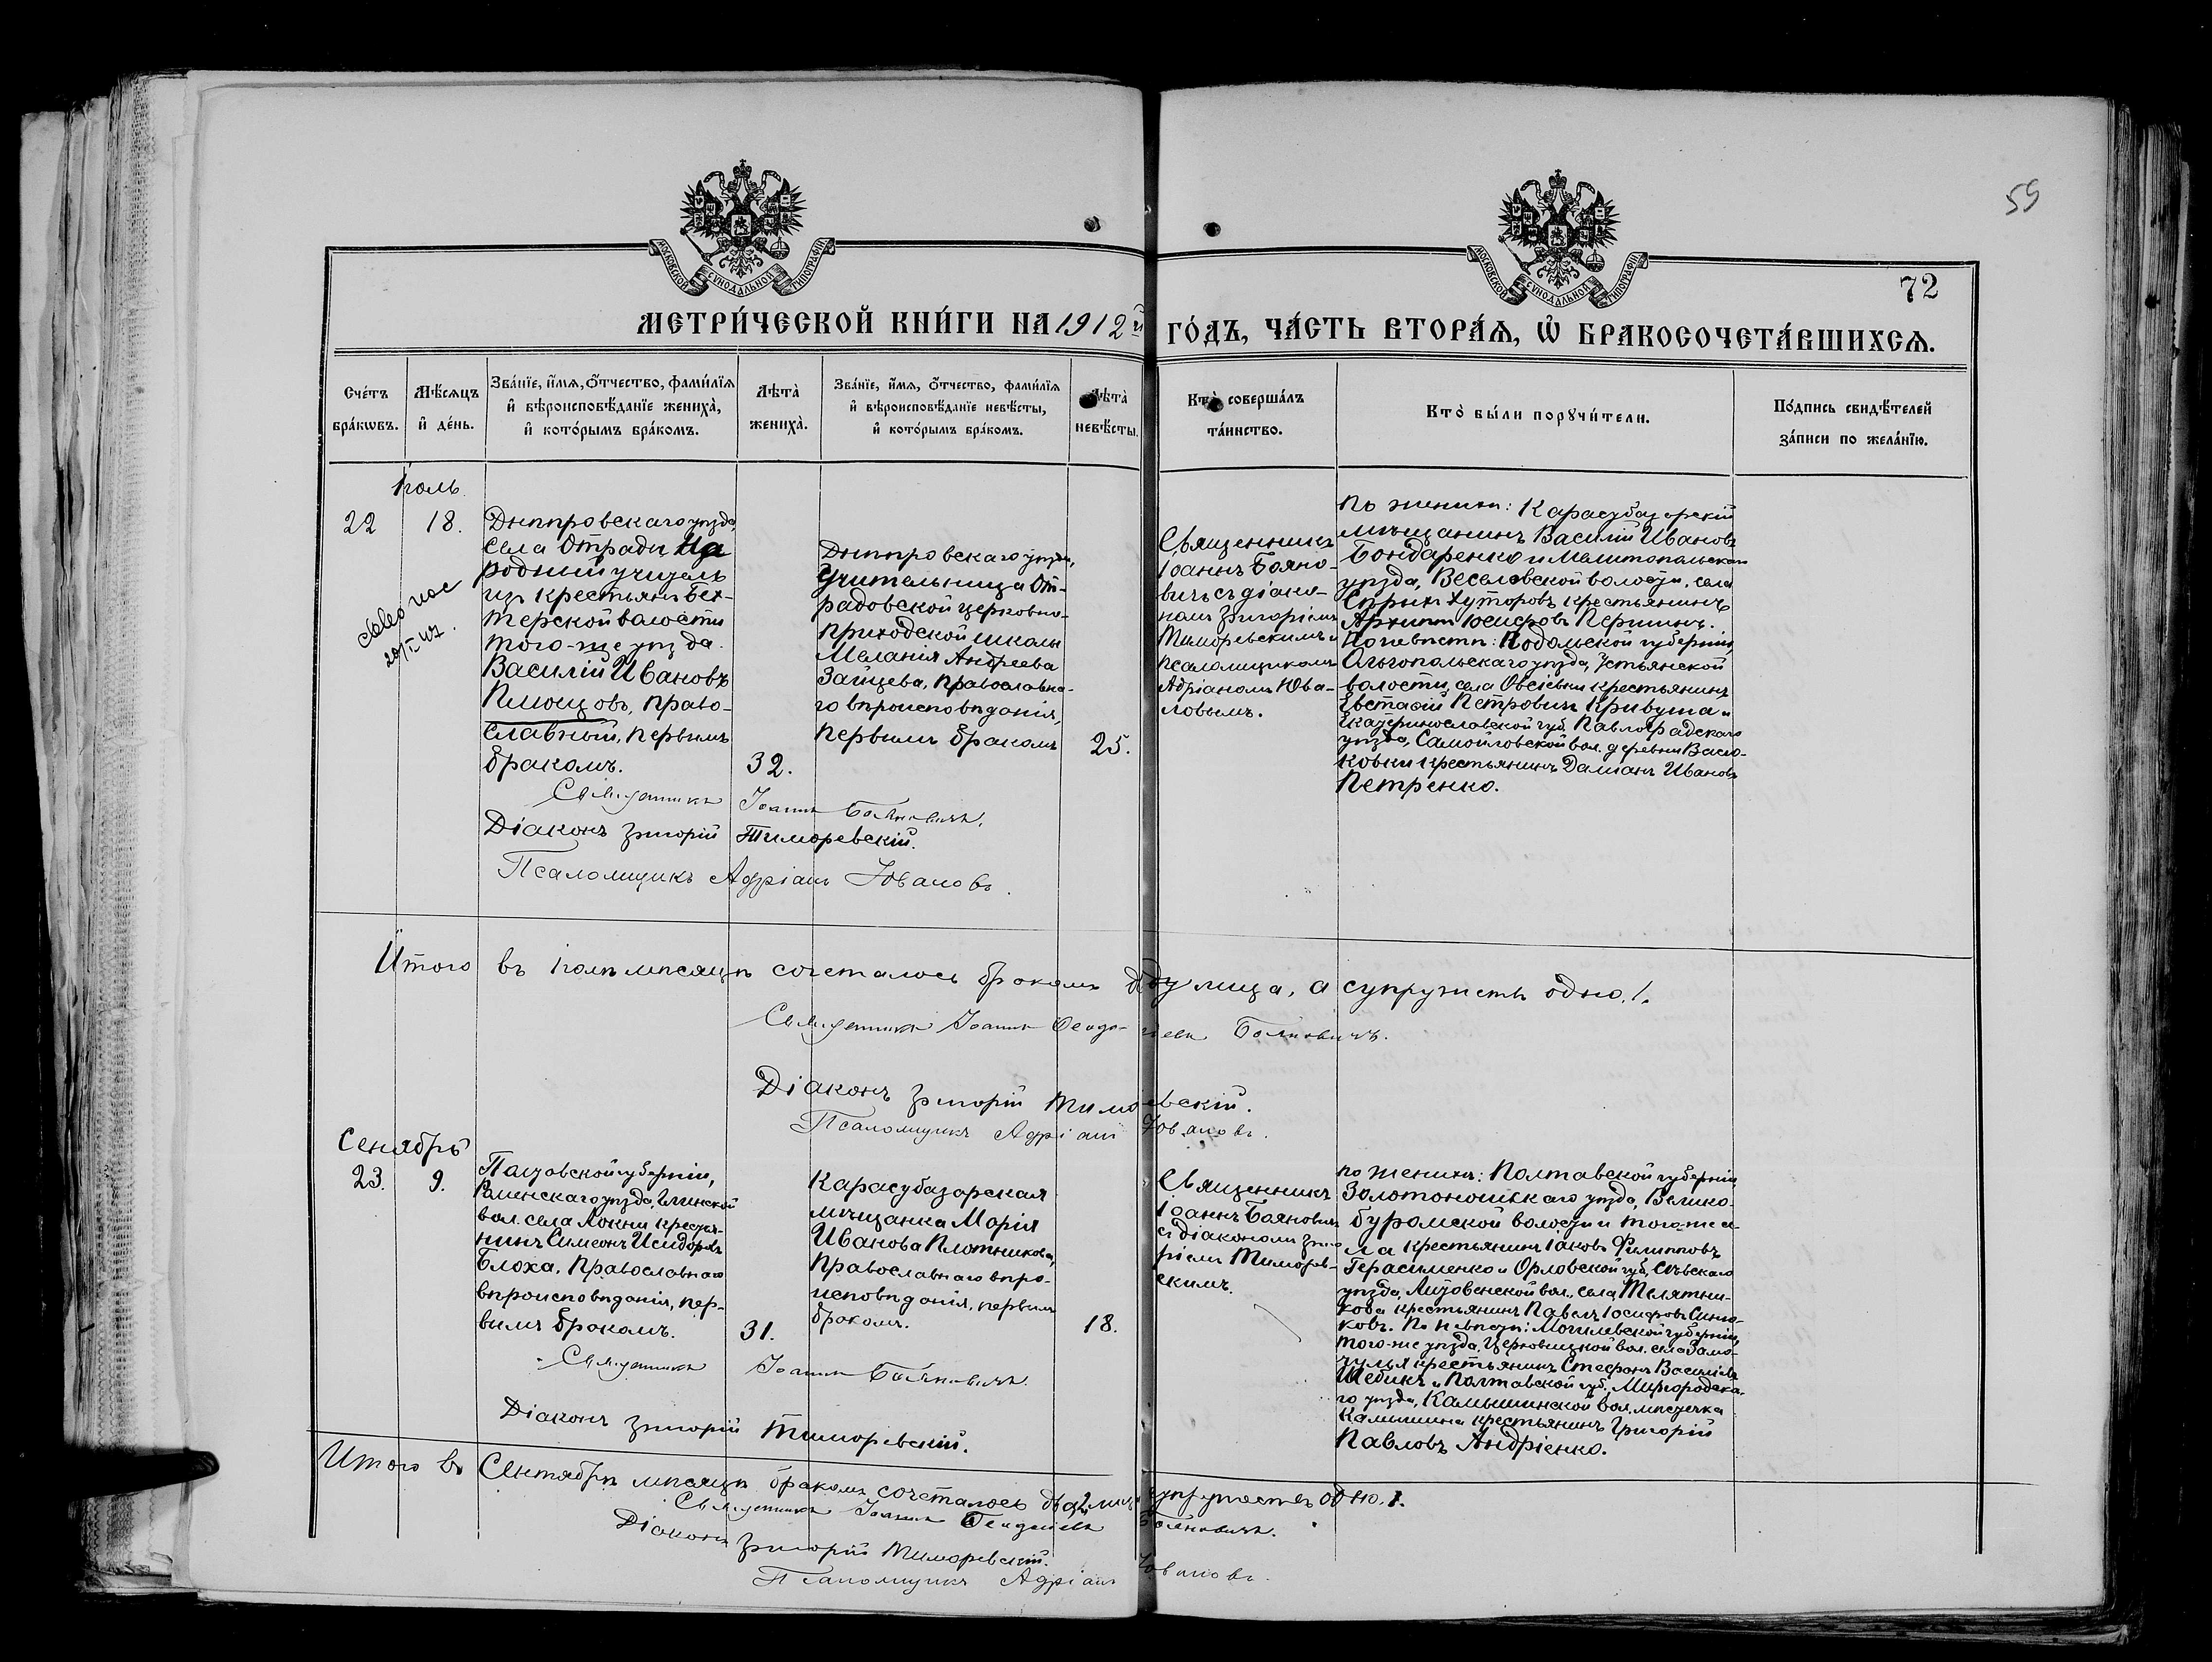 59
МОСКОВСКОЙ СѴНОДАЛЬНОЙ ТИПОГРАФІИ
МОСКОВСКОЙ СѴНОДАЛЬНОЙ ТИПОГРАФІИ
72
МЕТРИ́ЧЕСКОЙ КНИ́ГИ НА 1912 й ГО́ДЪ, ЧА́СТЬ ВТОРА́Ѧ, Ѡ҆ БРАКОСОЧЕТА́ВШИХСѦ.
Сче́тъ
бра́кѡвъ.
Мѣ́сѧцъ
и҆ де́нь.
Зва́нїе, и҆́мѧ, ѻ҆́тчество, фами́лїѧ
и҆ вѣроисповѣ́данїе жениха̀,
и҆ кото́рымъ бра́комъ.
Лѣта̀
жениха̀.
Зва́нїе, и҆́мѧ, ѻ҆́тчество, фами́лїѧ
и҆ вѣроисповѣ́данїе невѣ́сты,
и҆ кото́рымъ бра́комъ.
Лѣта̀
невѣ́сты.
Кто̀ соверша́лъ
та́инство.
Кто̀ бы́ли порꙋчи́тели.
По́дпись свидѣ́телей
за́писи по жела́нїю.
Іюль
22
18.
Днѣпровскаго уѣзда,
села Отрады На
родный учитель
изъ крестьянъ Бех-
терской волости
того-же уѣзда.
Василій Ивановъ
Плющовъ, право-
славный, первымъ
бракомъ.
32.
Днѣпровскаго уѣзда,
Учительница От-
радовской церковно-
приходской школы
Меланія Андреева
Зайцева, православна-
го вѣроисповѣданія,
первымъ бракомъ
25.
Священникъ
Іоаннъ Бояно-
вичъ съ діако-
номъ Григоріемъ
Тиморевскимъ и
псаломщикомъ
Адріаномъ Юва-
ловымъ.
По женихѣ: Карасубазарскій
мѣщанинъ Василій Ивановъ
Бондаренко и Мелитопольскаго
уѣзда, Веселовской волости, села
хуторовъ крестьянинъ
Архиппъ Іосифовъ Першинъ.
По невѣстѣ: Подольской губерніи,
Ольгопольскаго уѣзда, Устьянской
волости, села Овсіевки крестьянинъ
Евстафій Петровичъ Кривуша и
Екатеринославской губ. Павлоградскаго
уѣзда, Самойловской вол. деревни Васю-
ковки крестьянинъ Даміанъ Ивановъ
Петренко.
Священникъ Іоаннъ Бояновичъ.
Діаконъ Григорій Тиморевскій.
Псаломщикъ Адріанъ Юваловъ.
Итого въ Іюлѣ мѣсяцѣ сочеталось бракомъ двѣ лица, а супружествъ одно. 1.
Священникъ Іоаннъ Бояновичъ.
Діаконъ Григорій Тиморевскій.
Псаломщикъ Адріанъ Юваловъ.
Сентябрь
23.
9.
губерніи,
Роменскаго уѣзда, Глинской
вол. села Локни крестья-
нинъ Симеонъ Исидоровъ
Блоха, православнаго
вѣроисповѣданія, пер-
вымъ бракомъ.
31.
Карасубазарская
мѣщанка Марія
Иванова Плотникова,
православнаго вѣро-
исповѣданія, первымъ
бракомъ.
18.
Священникъ
Іоаннъ Бояновичъ
съ діакономъ Григо-
ріемъ Тиморев-
скимъ.
по женихѣ: Полтавской губерніи
Золотоношскаго уѣзда, Велико-
буромской волости и того-же се-
ла крестьянинъ Іаковъ Филипповъ
Герасименко и Орловской губ, Сѣвскаго
уѣзда, вол., села Телятни-
кова крестьянинъ Павелъ Іосифовъ
По невѣстѣ: Могилевской губерніи,
того-же уѣзда, вол. села
крестьянинъ Стефанъ Василіевъ
Шебикъ и Полтавской губ. Миргородска-
го уѣзда, Камышинской вол. мѣстечка
Камышина крестьянинъ Григорій
Павловъ Андріенко.
Священникъ Іоаннъ Бояновичъ
Діаконъ Григорій Тиморевскій.
Итого въ Сентябрѣ мѣсяцѣ бракомъ сочеталось два лица супружествъ одно. 1.
Священникъ Іоаннъ Бояновичъ.
Діаконъ Григорій Тиморевскій.
Псаломщикъ Адріанъ Юваловъ.